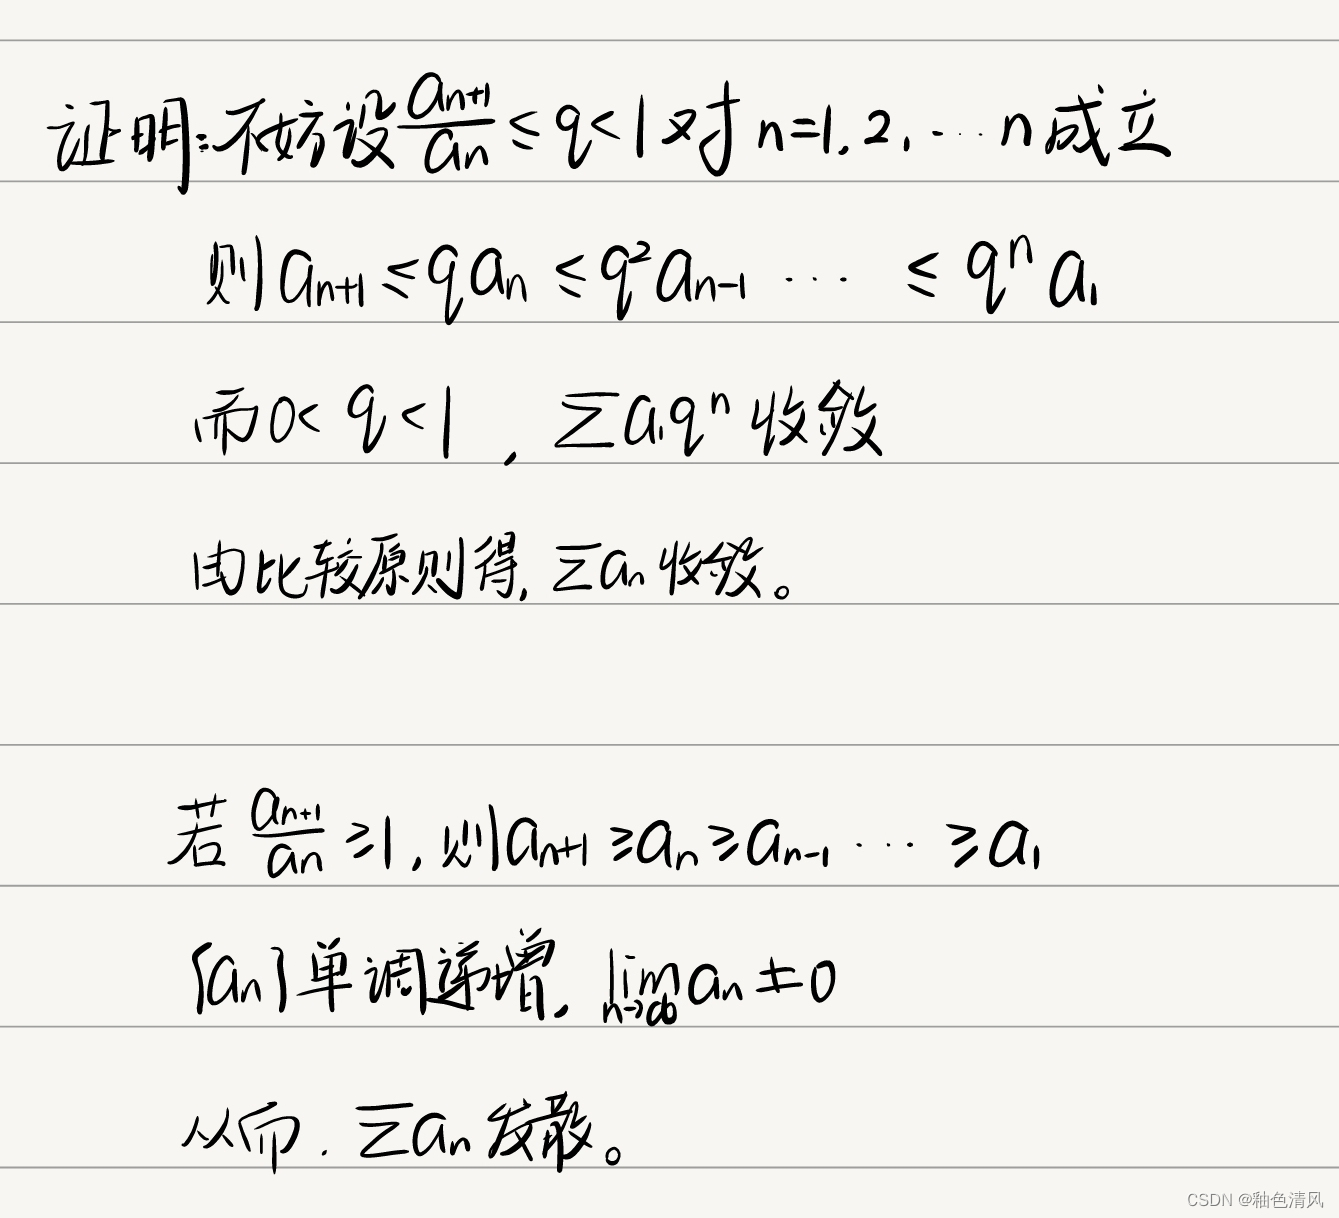 证明:不妨设 \frac{a_{n+1}}{a_n} ≤ q < 1 对 n=1,2,…n 成立
则 a_{n+1} ≤ q a_n ≤ q^2 a_{n-1} … ≤ q^n a_1
而 0< q < 1 , Σ a_1 q^n 收敛
由比较原则得, Σ a_n 收敛。
若 \frac{a_{n+1}}{a_n} ≥ 1, 则 a_{n+1} ≥ a_n ≥ a_{n-1} … ≥ a_1
{a_n} 单调递增, \lim_{n→∞} a_n ≠ 0
从而. Σ a_n 发散。
CSDN @釉色清风